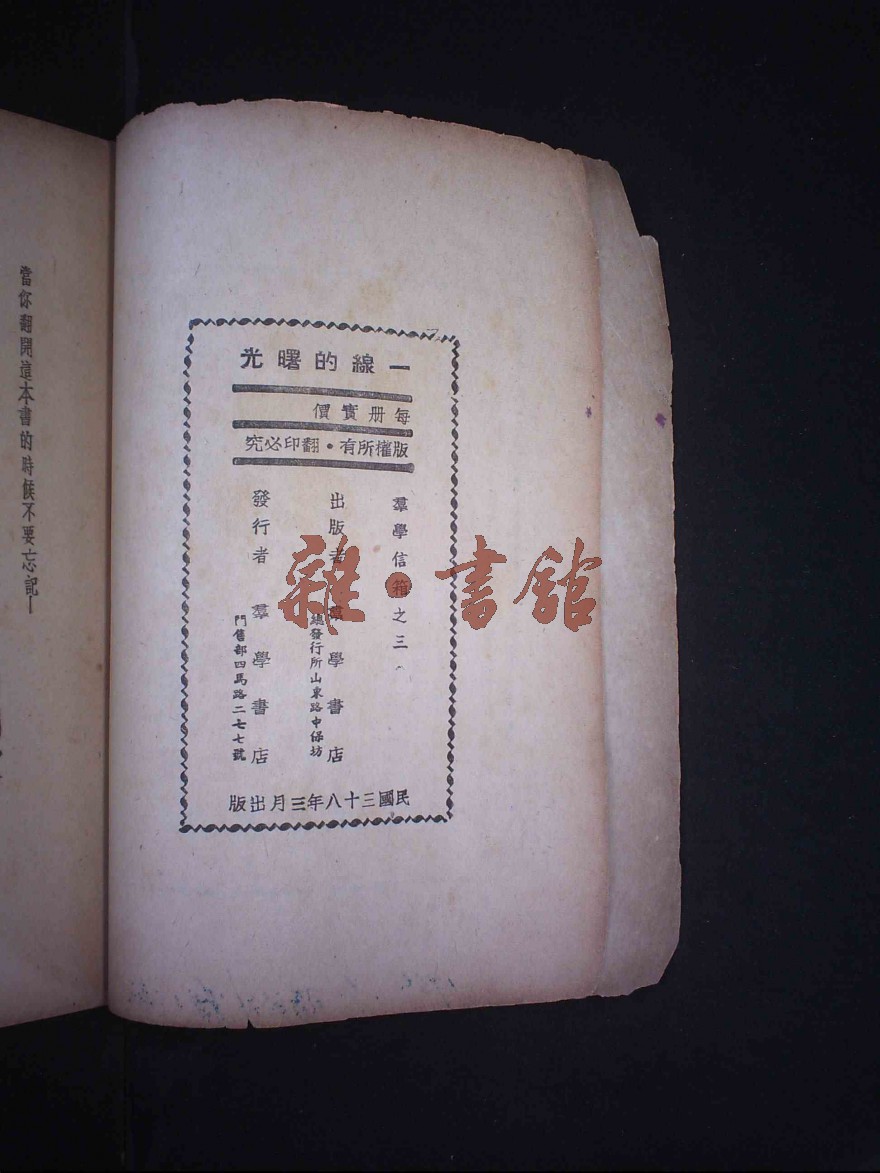 一線的曙光
每册實價
版權所有・翻印必究
羣學信箱之三
出版者 羣學書店
總發行所山東路中保坊
發行者 羣學書店
門售部四馬路二七七號
民國三十八年三月出版
當你翻開這本書的時候不要忘記—
雜・書館